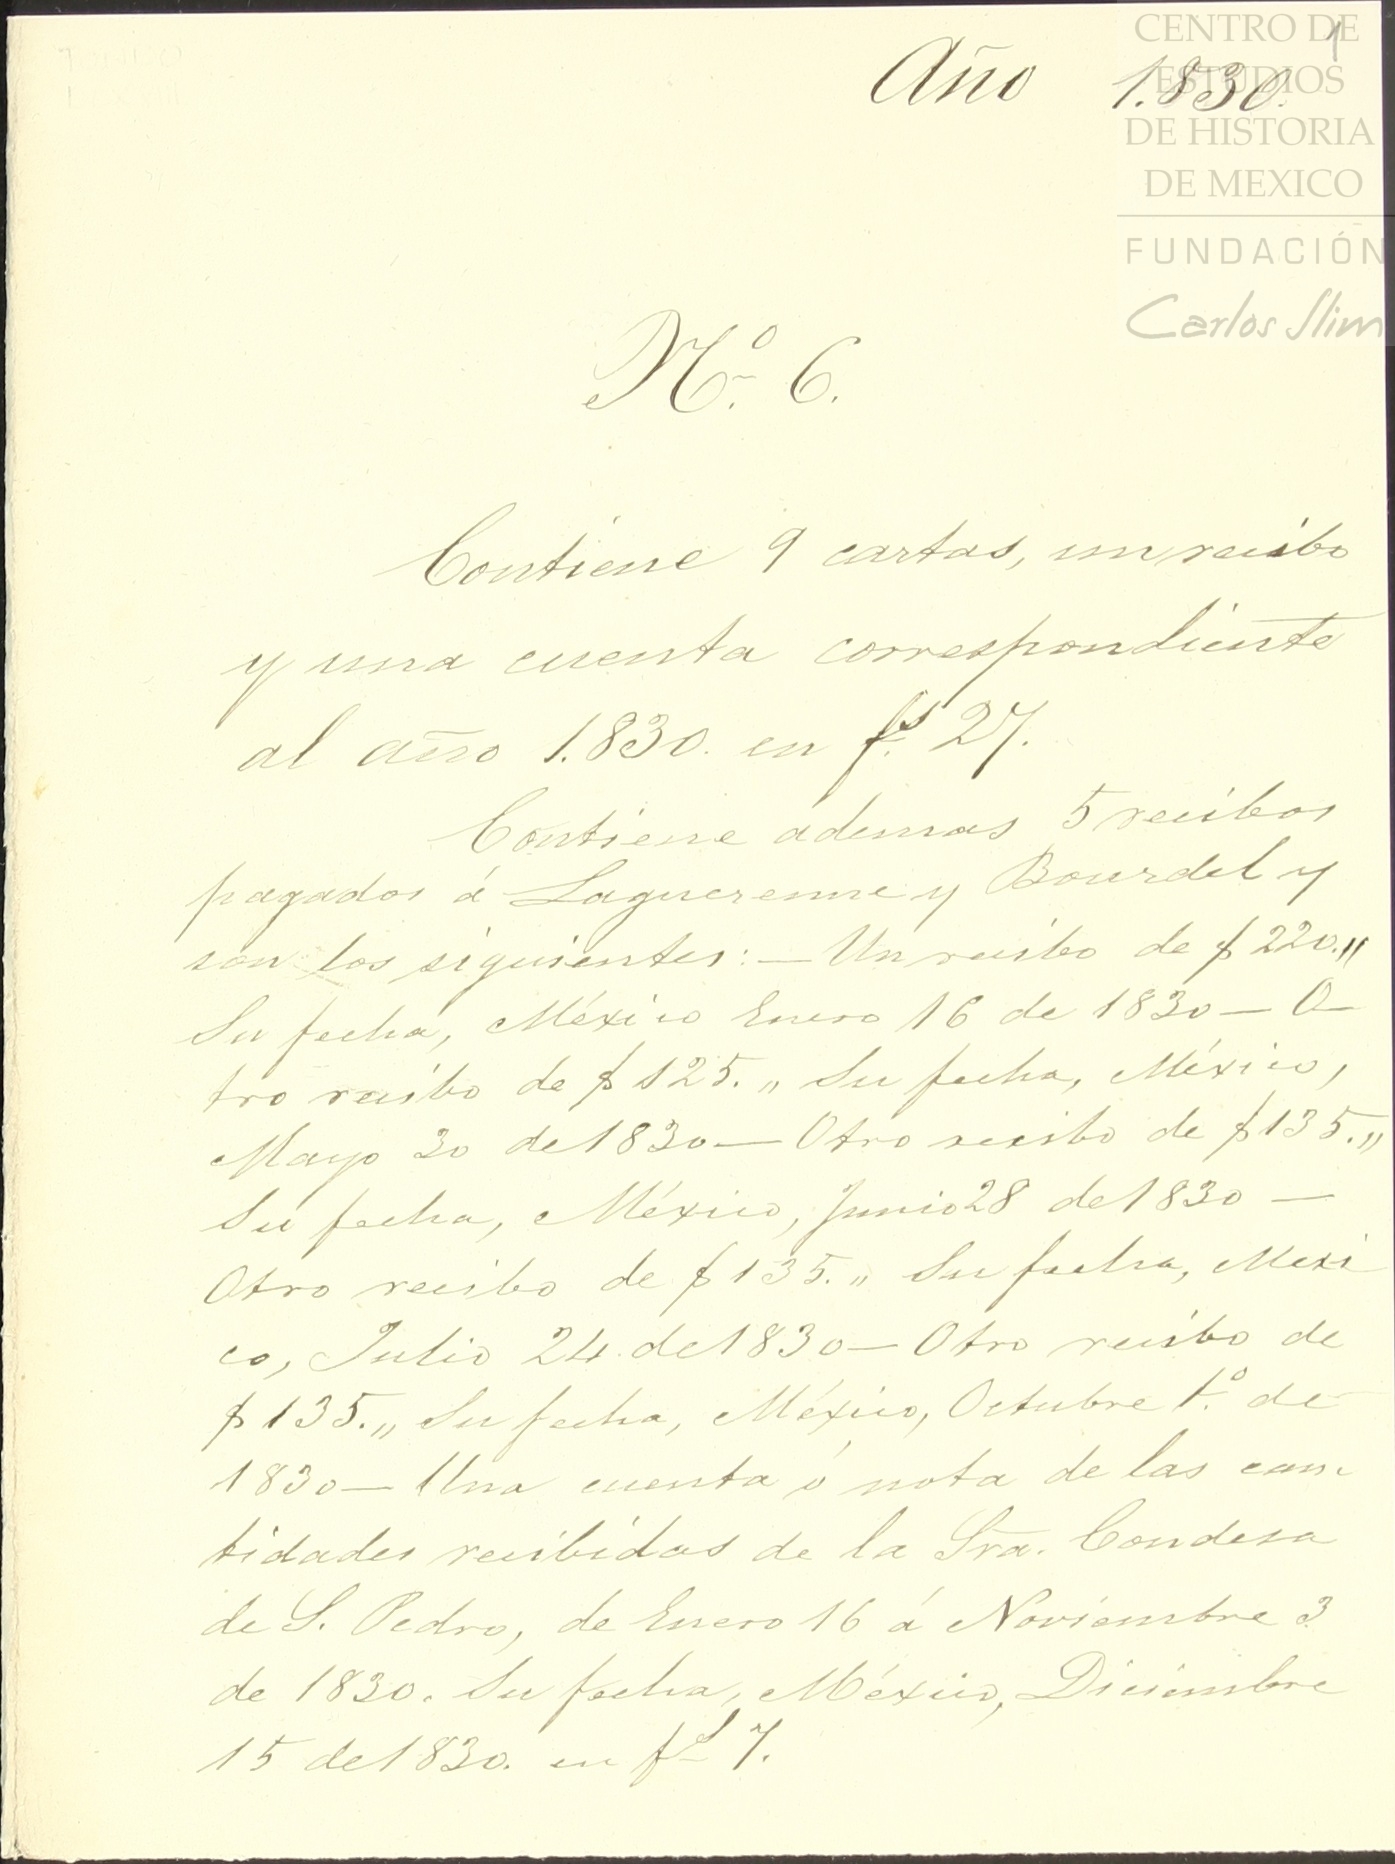 1
Año 1.830.
CENTRO DE
ESTUDIOS
DE HISTORIA
DE MEXICO
FUNDACIÓN
Carlos Slim
Nº. 6.
Contiene 9 cartas, un recibo
y una cuenta correspondiente
al año 1.830. en fs. 27.
Contiene ademas 5 recibos
pagados á Laguerenne y Bourdel y
son los siguientes: — Un recibo de $220.,,
Su fecha, México Enero 16 de 1830 — O-
tro recibo de $125.,, Su fecha, México,
Mayo 30 de 1830 — Otro recibo de $135.,,
Su fecha, México, Junio 28 de 1830 —
Otro recibo de $135.,, Su fecha, Mexi
co, Julio 24 de 1830 — Otro recibo de
$135.,, Su fecha, México, Octubre 1º. de
1830 — Una cuenta ó nota de las can-
tidades recibidas de la Sra. Condesa
de S. Pedro, de Enero 16 á Noviembre 3
de 1830. Su fecha, México, Diciembre
15 de 1830. en fs 7.